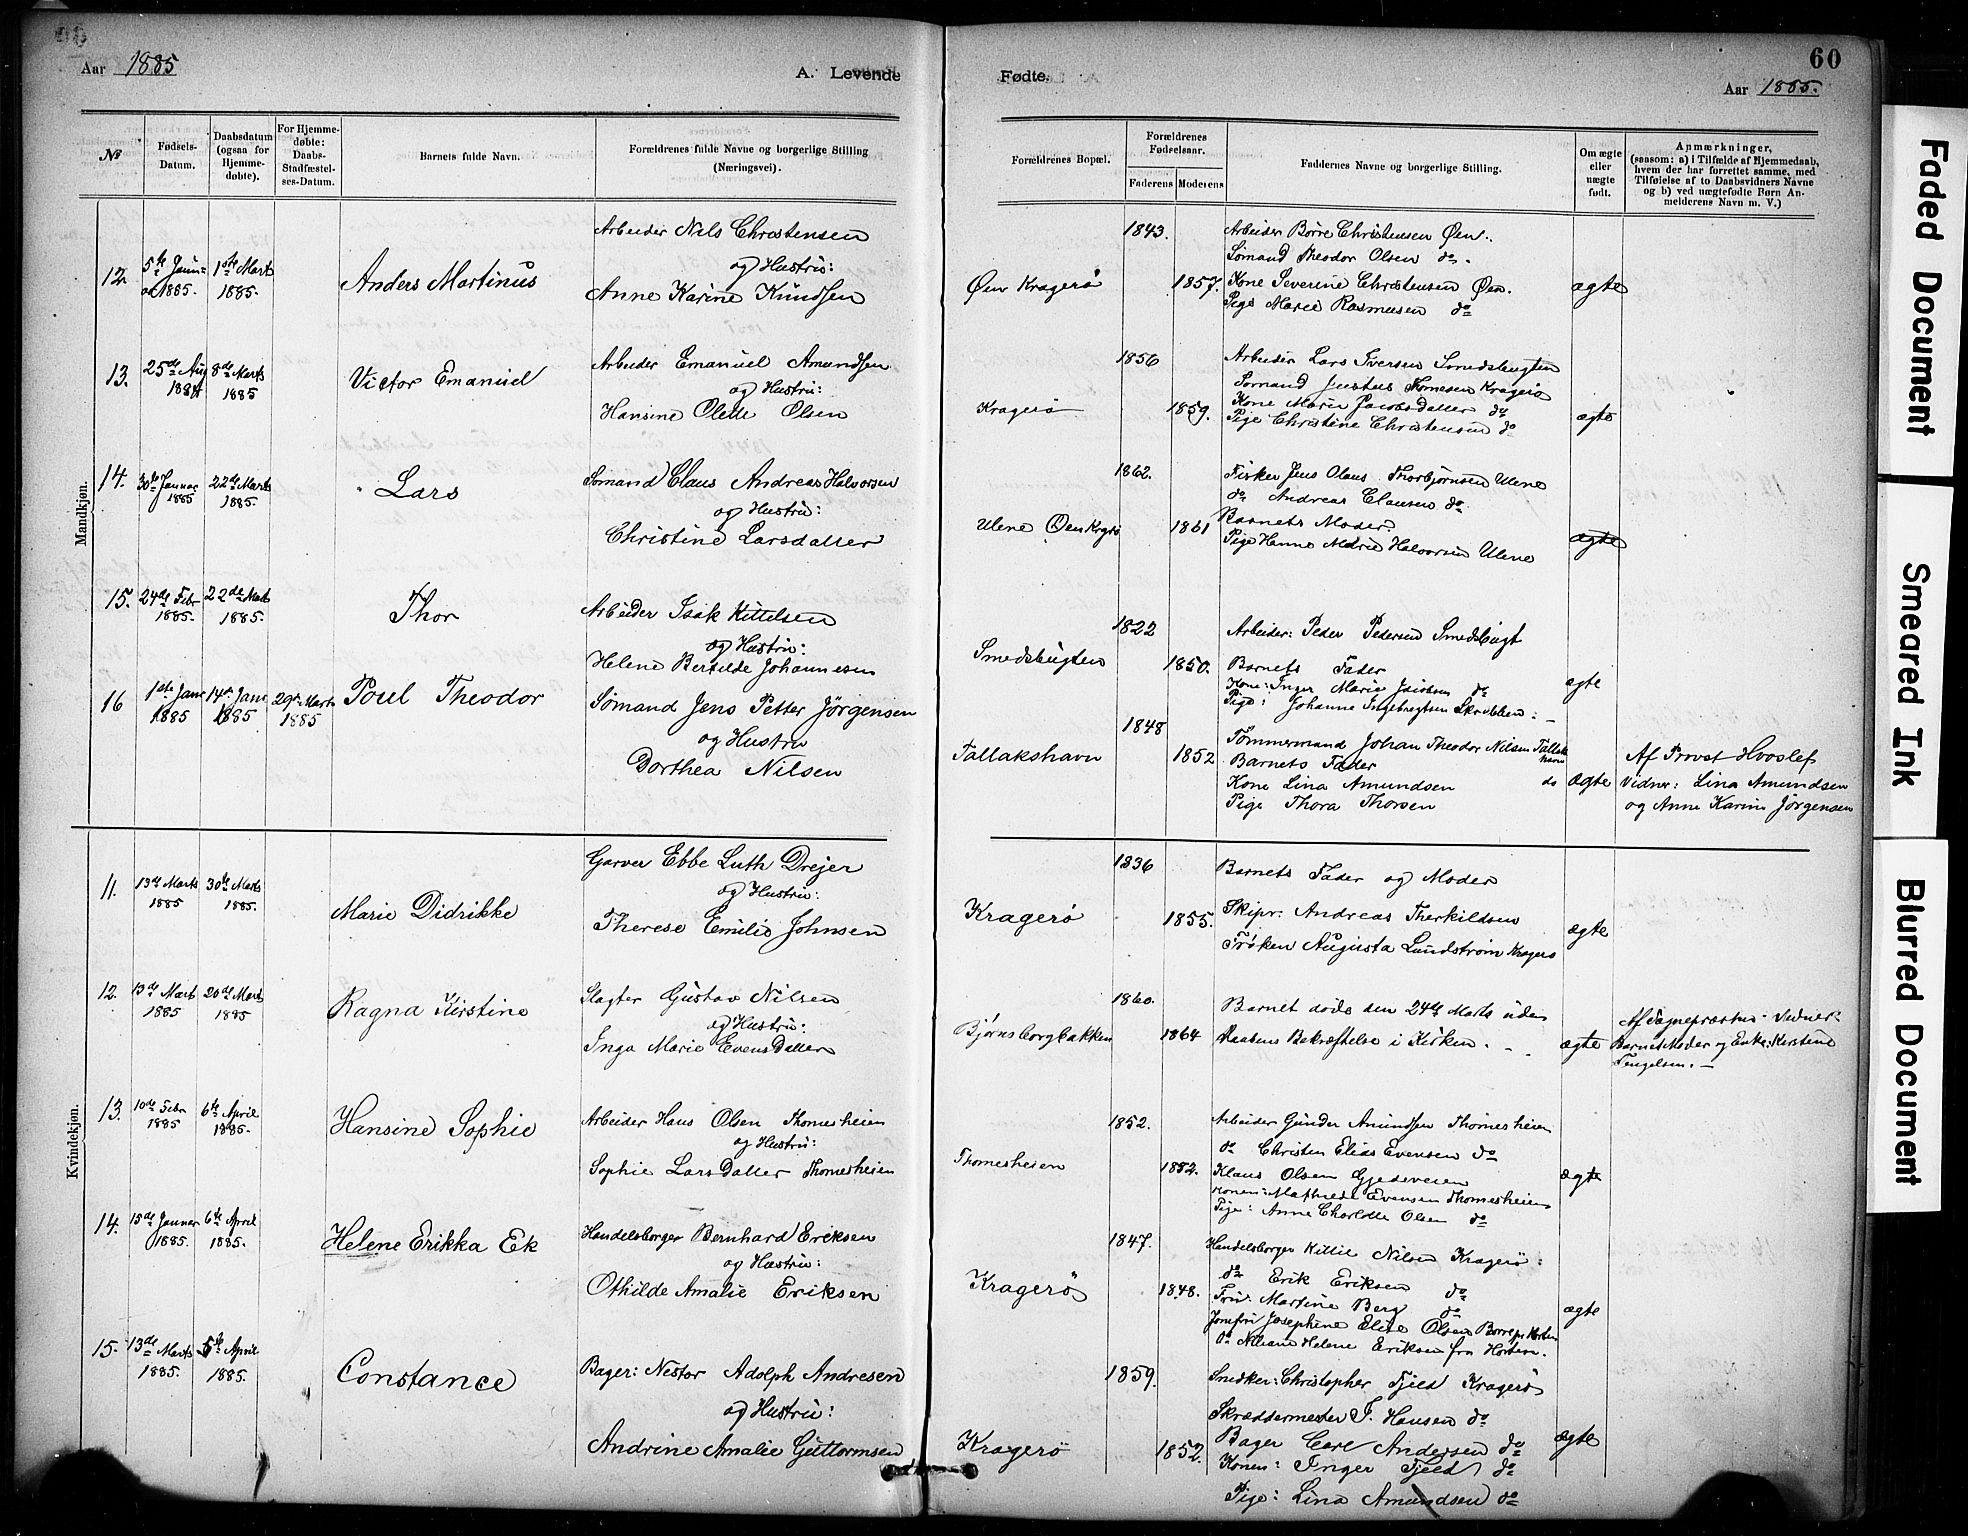 60
Aar 1885
A. Levende
Fødte.
Aar 1885.
№
Fødsels-Datum.
Daabsdatum (ogsaa for Hjemmedøbte).
For Hjemmedøbte: Daabs-Stadfæstelses-Datum.
Barnets fulde Navn.
Forældrenes fulde Navne og borgerlige Stilling (Næringsvei).
Forældrenes Bopæl.
Forældrenes Fødselsaar.
Faderens
Moderens
Faddernes Navne og borgerlige Stilling.
Om ægte eller uægte født.
Anmærkninger,
(saasom: a) i Tilfælde af Hjemmedaab,
hvem der har forrettet samme, med
Tilføielse af to Daabsvidners Navne
og b) ved uægtefødte Børn Anmelderens Navn m. V.)
Mandkjøn.
12.
5te Janu-ar 1885.
1ste Marts 1885.
Anders Martinus
Arbeider Nils Christensen
og Hustru:
Anne Karine Knudsen
Øen Kragerö
1843.
1857.
Arbeider Börre Christensen Øen.
Sömand Theodor Olsen do.
Kone Severine Christensen Øen.
Pige Marie Rasmusen do
ægte
13.
25de Aug 1884
8de Marts 1885
Victor Emanuel
Arbeider Emanuel Amundsen
og Hustru:
Hansine Olette Olsen
Kragerö
1856
1859.
Arbeider Lars Iversen Smedsbugten
Sömand Justus Thomesen Kragerö
Kone Marie Jacobsdatter do
Pige Christine Christensen do
ægte
14.
30te Januar 1885
22de Marts 1885.
Lars
Sömand Claus Andreas Halvorsen
og Hustru:
Christine Larsdatter
Ulene Øen Kragrö
1862.
1861
Fisker Jens Olaus Thorbjörnsen Ulene
do Andreas Clausen do
Barnets Moder.
Pige Hanne Marie Halvorsen Ulene
ægte
15.
24de Febr 1885.
22de Marts 1885.
Thor
Arbeider Isak Kittelsen
og Hustru:
Helene Bertilde Johannesen
Smedsbugten
1822
1850.
Arbeider: Peder Pedersen Smedsbugt
Barnets Fader
Kone: Inger Marie Jacobsen do
Pige: Johanne Ingebregtsen Skrubben: -
ægte
16
1ste Janr 1885
14de Janr 1885
29de Marts 1885
Poul Theodor
Sømand Jens Petter Jörgensen
og Hustru
Dorthea Nilsen
Tallakshavn
1848
1852
Tømmermand Johan Theodor Nilsen Tallakshavn
Barnets Fader
Kone Lina Amundsen do
Pige Thora Thorsen
ægte
Af Provst Hvoslef
Vidner: Lina Amundsen
og Anne Karine Jørgensen
Kvindekjøn.
11.
13de Marts 1885
30te Marts 1885.
Marie Didrikke
Garver Ebbe Luth Drejer
og Hustru:
Therese Emilie Johnsen
Kragerö
1836
1855.
Barnets Fader og Moder
Skipr: Andreas Therkildsen
Fröken Augusta Lundström Kragerö
ægte
12.
13de Marts 1885
20de Marts 1885
Ragna Kirstine
Slagter Gustav Nilsen
og Hustru:
Inga Marie Evensdatter
Björnsborgbakken
1860.
1864
Barnet døde den 24de Marts uden
Daabens Bekræftelse i Kirken.
ægte
Af Sognepræsten - Vidner:
Barnets Moder og Enke: Kerstine
13.
10de Febr 1885
6te April 1885.
Hansine Sophie
Arbeider Hans Olsen Thomesheien
og Hustru:
Sophie LarsDatter Thomesheien
Thomesheien
1852.
1852.
Arbeider Gunder Amundsen Thomesheien
do Christen Elias Evensen do
Klaus Olsen Gjedeveien
Konen: Mathilde Evensen Thomesheien
Pige: Anne Charlotte Olsen do
ægte
14.
15de Januar 1885.
6te April 1885.
Helene Erikka Ek
Handelsborger Bernhard Eriksen
og Hustru:
Othilde Amalie Eriksen
Kragerö
1847.
1848.
Handelsborger Kittil Nilsen Kragerö:
do Erik Eriksen do
Fru: Martine Berg do
Jomfru Josephine Elise Olsen Borre pr Horten
do Helene Eriksen fra Horten.
ægte
15.
13de Marts 1885.
5te April 1885.
Constance
Bager: Nestor Adolph Andresen
og Hustru:
Andrine Amalie Guttormsen
Kragerö
1859.
1852.
Snedker: Christopher Fjeld Kragerö
Skræddermester F. Hansen do
Bager Carl Andersen do
Konen: Inger Fjeld do
Pige: Lina Amundsen do
ægte
Faded Document
Smeared Ink
Blurred Document